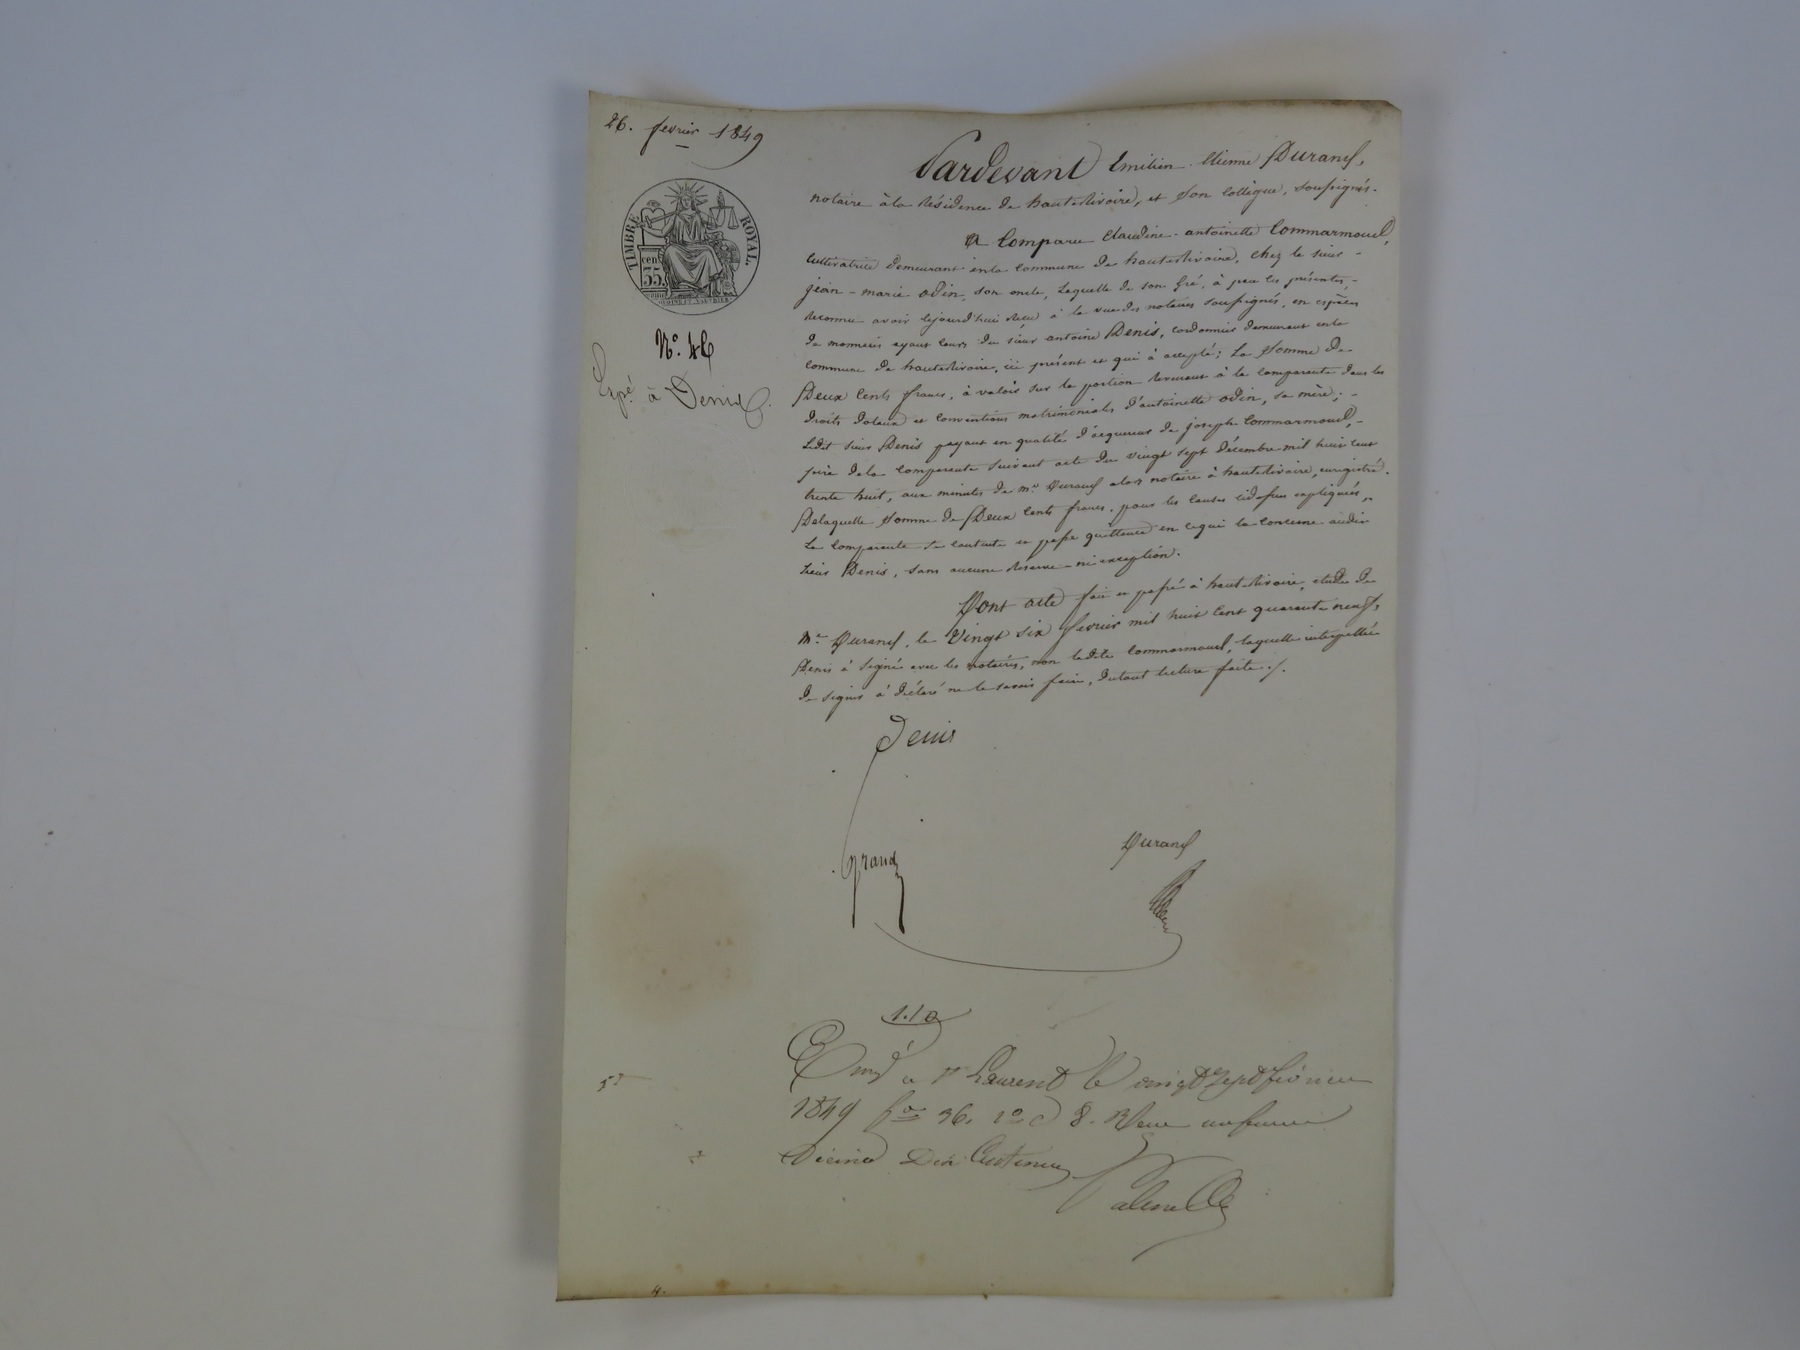 26. fevrier 1849
TIMBRE ROYAL.
cen
35
N°. 46
Expé. à Denis
Pardevant Emilien Etienne Durand,
notaire à la résidence de hauterivoire, et son collègue, soussignés.
A Comparu Claudine-antoinette Commarmoud,
cultivatrice demeurant en la commune de hauterivoire, chez le sieur
jean-marie odin, son oncle, Laquelle de son gré, à par les présentes,
reconnu avoir cejourd'hui reçu à la vue des notaires soussignés, en espèces
de monnaies ayant cours du sieur antoine Denis, cordonnier demeurant en la
commune de hauterivoire, ici présent et qui à accepté; La somme de
Deux cents francs, à valoir sur la portion revenant à la comparente dans les
droits dotaux et conventions matrimoniales d'antoinette odin, sa mère;
Ledit sieur Denis payant en qualité d'acquereur de joseph Commarmoud,
père de la comparente suivant acte du vingt sept décembre mil huit cent
trente huit, aux minutes de me. Durand alors notaire à hauterivoire, enregistré.
Delaquelle somme de Deux cents francs, pour les causes cidessus expliquées,
La comparente se contente et passe quittance en cequi la concerne audit
sieur Denis, sans aucune réserve ni exception.
Dont acte fait et passé à hauterivoire, étude de
me. Durand, le Vingt six fevrier mil huit cent quarante neuf,
Denis à signé avec les notaires, non ladite Commarmoud, laquelle interpellée
de signer à déclaré ne le savoir faire, dutout lecture faite./.
Denis
Durand
grand
1.10
Enrgé à St Laurent le vingt sept février
1849 fo 36. Vo C 8. Reçu un franc
décime Dix Centimes